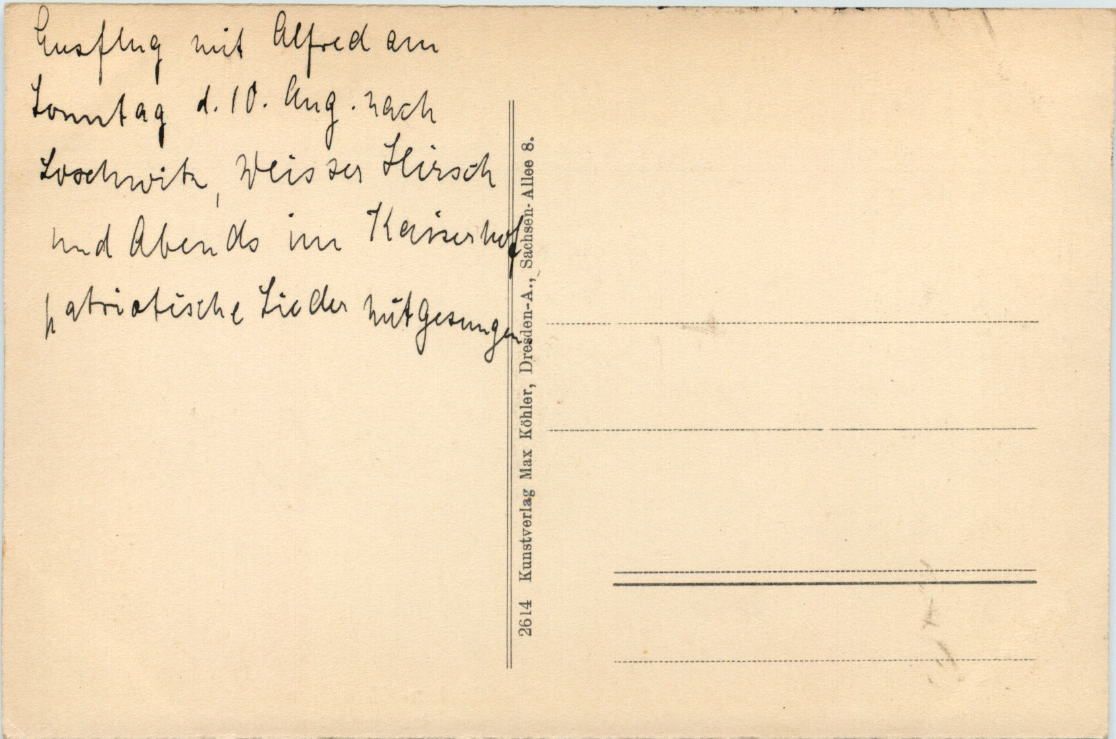 Ausflug mit Alfred am
Sonntag d. 10. Aug. nach
Loschwitz, Weisser Hirsch
und Abends im Kaiserhof
patriotische Lieder mitgesungen.
2614 Kunstverlag Max Köhler, Dresden-A., Sachsen-Allee 8.